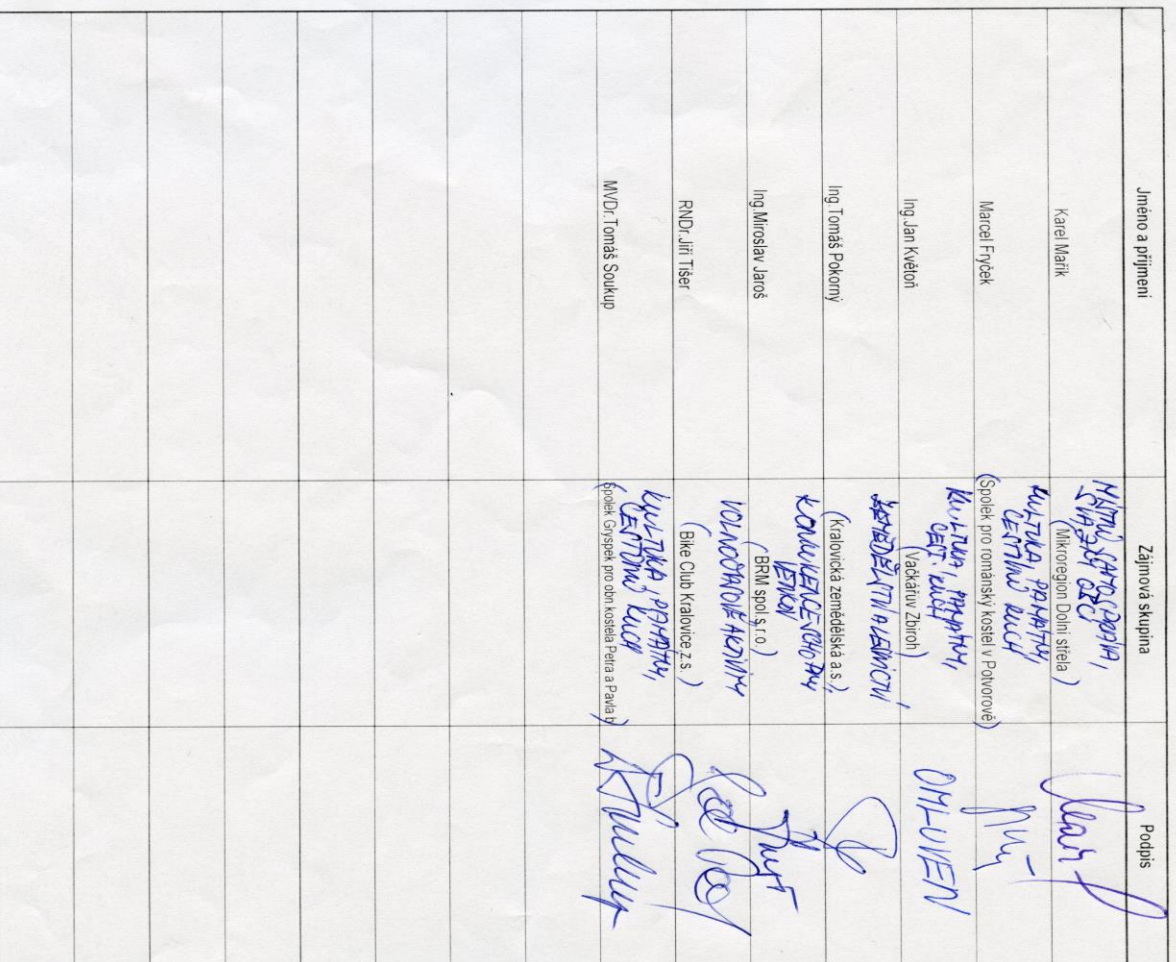 Jméno a příjmení Zájmová skupina Podpis
Karel Mařík
MÍSTNÍ SAMOSPRÁVA,
SVAZKY OBCÍ
(Mikroregion Dolní střela)
Marcel Fryček
KULTURA, PAMÁTKY,
CESTOVNÍ RUCH
(Spolek pro románský kostel v Potvorově)
Ing.Jan Květoň
KULTURA, PAMÁTKY,
CEST. RUCH
(Vačkářuv Zbiroh)
OMLUVEN
Ing.Tomáš Pokorný
ZEMĚDĚLSTVÍ A LESNICTVÍ
(Kralovická zemědělská a.s.)
Ing.Miroslav Jaroš
VENKOV
(BRM spol.s.r.o.)
RNDr.Jiří Tišer
VOLNOČASOVÉ AKTIVITY
(Bike Club Kralovice z.s.)
MVDr.Tomáš Soukup
KULTURA, PAMÁTKY,
CESTOVNÍ RUCH
(Spolek Gryspek pro obn.kostela Petra a Pavla b)